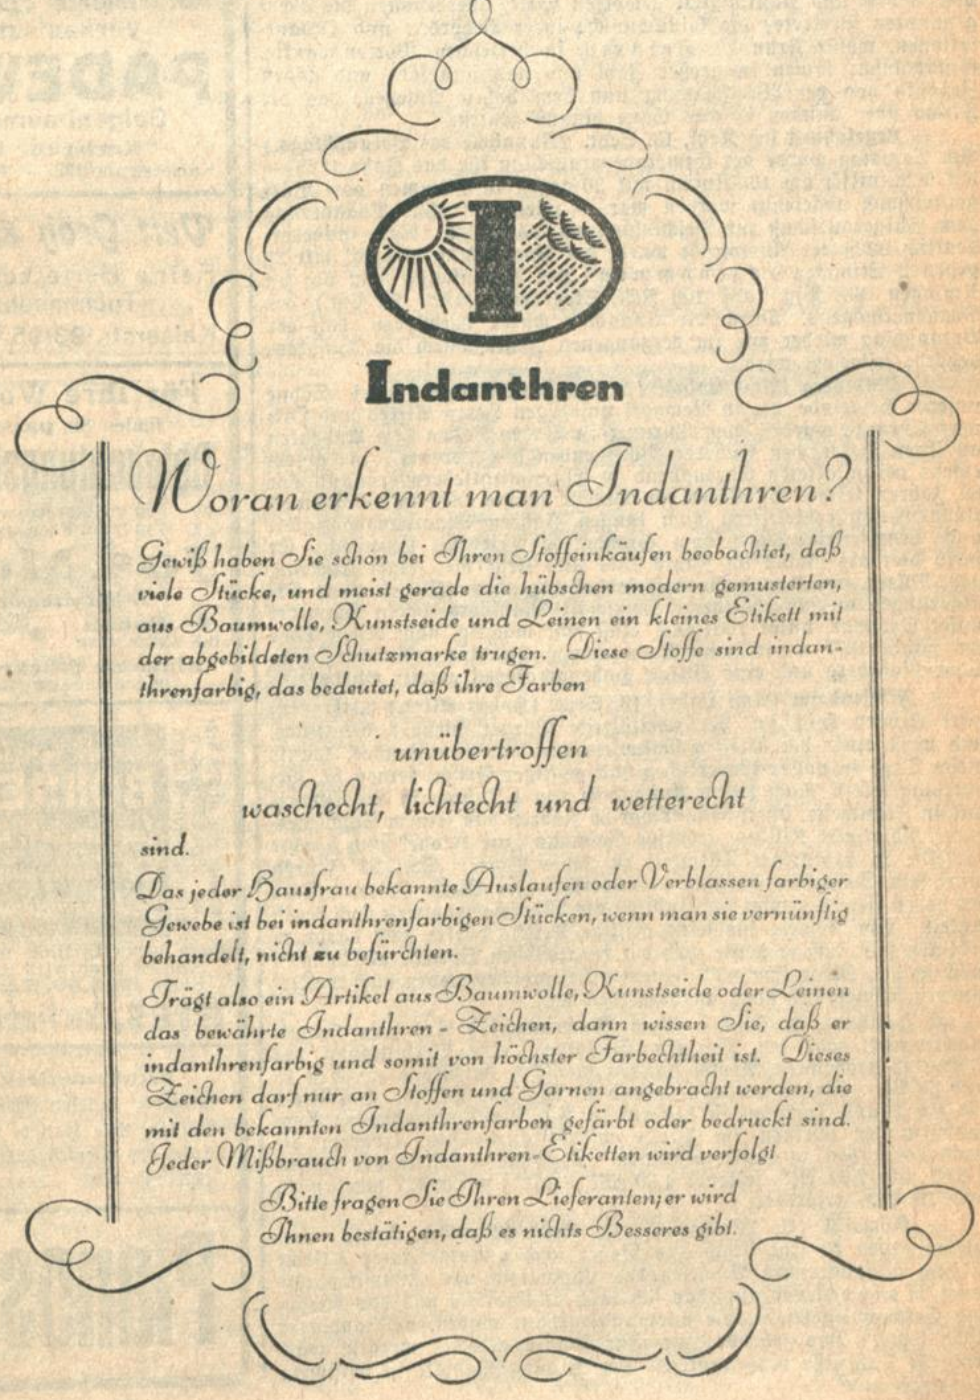 I
Indanthren
Woran erkennt man Indanthren?
Gewiß haben Sie schon bei Ihren Stoffeinkäufen beobachtet, daß
viele Stücke, und meist gerade die hübschen modern gemusterten,
aus Baumwolle, Kunstseide und Leinen ein kleines Etikett mit
der abgebildeten Schutzmarke trugen. Diese Stoffe sind indan-
threnfarbig, das bedeutet, daß ihre Farben
unübertroffen
waschecht, lichtecht und wetterecht
sind.
Das jeder Hausfrau bekannte Auslaufen oder Verblassen farbiger
Gewebe ist bei indanthrenfarbigen Stücken, wenn man sie vernünftig
behandelt, nicht zu befürchten.
Trägt also ein Artikel aus Baumwolle, Kunstseide oder Leinen
das bewährte Indanthren-Zeichen, dann wissen Sie, daß er
indanthrenfarbig und somit von höchster Farbechtheit ist. Dieses
Zeichen darf nur an Stoffen und Garnen angebracht werden, die
mit den bekannten Indanthrenfarben gefärbt oder bedruckt sind.
Jeder Mißbrauch von Indanthren-Etiketten wird verfolgt
Bitte fragen Sie Ihren Lieferanten; er wird
Ihnen bestätigen, daß es nichts Besseres gibt.